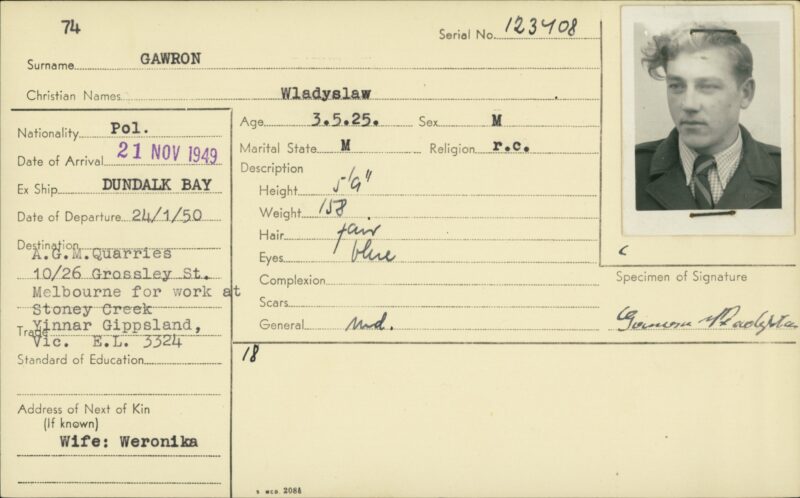 74
Serial No. 123408
Surname GAWRON
Christian Names Wladyslaw
Nationality Pol.
Date of Arrival 21 NOV 1949
Ex Ship DUNDALK BAY
Date of Departure 24/1/50
Destination
A.G.M.Quarries
10/26 Grossley St.
Melbourne for work at
Stoney Creek
Trade Yinnar Gippsland,
Vic. E.L. 3324
Standard of Education
Address of Next of Kin
(If known)
Wife: Weronika
Age 3.5.25. Sex M
Marital State M Religion r.c.
Description
Height 5'9"
Weight 158
Hair fair
Eyes blue
Complexion
Scars
General
18
Specimen of Signature
Gawron Wladyslaw